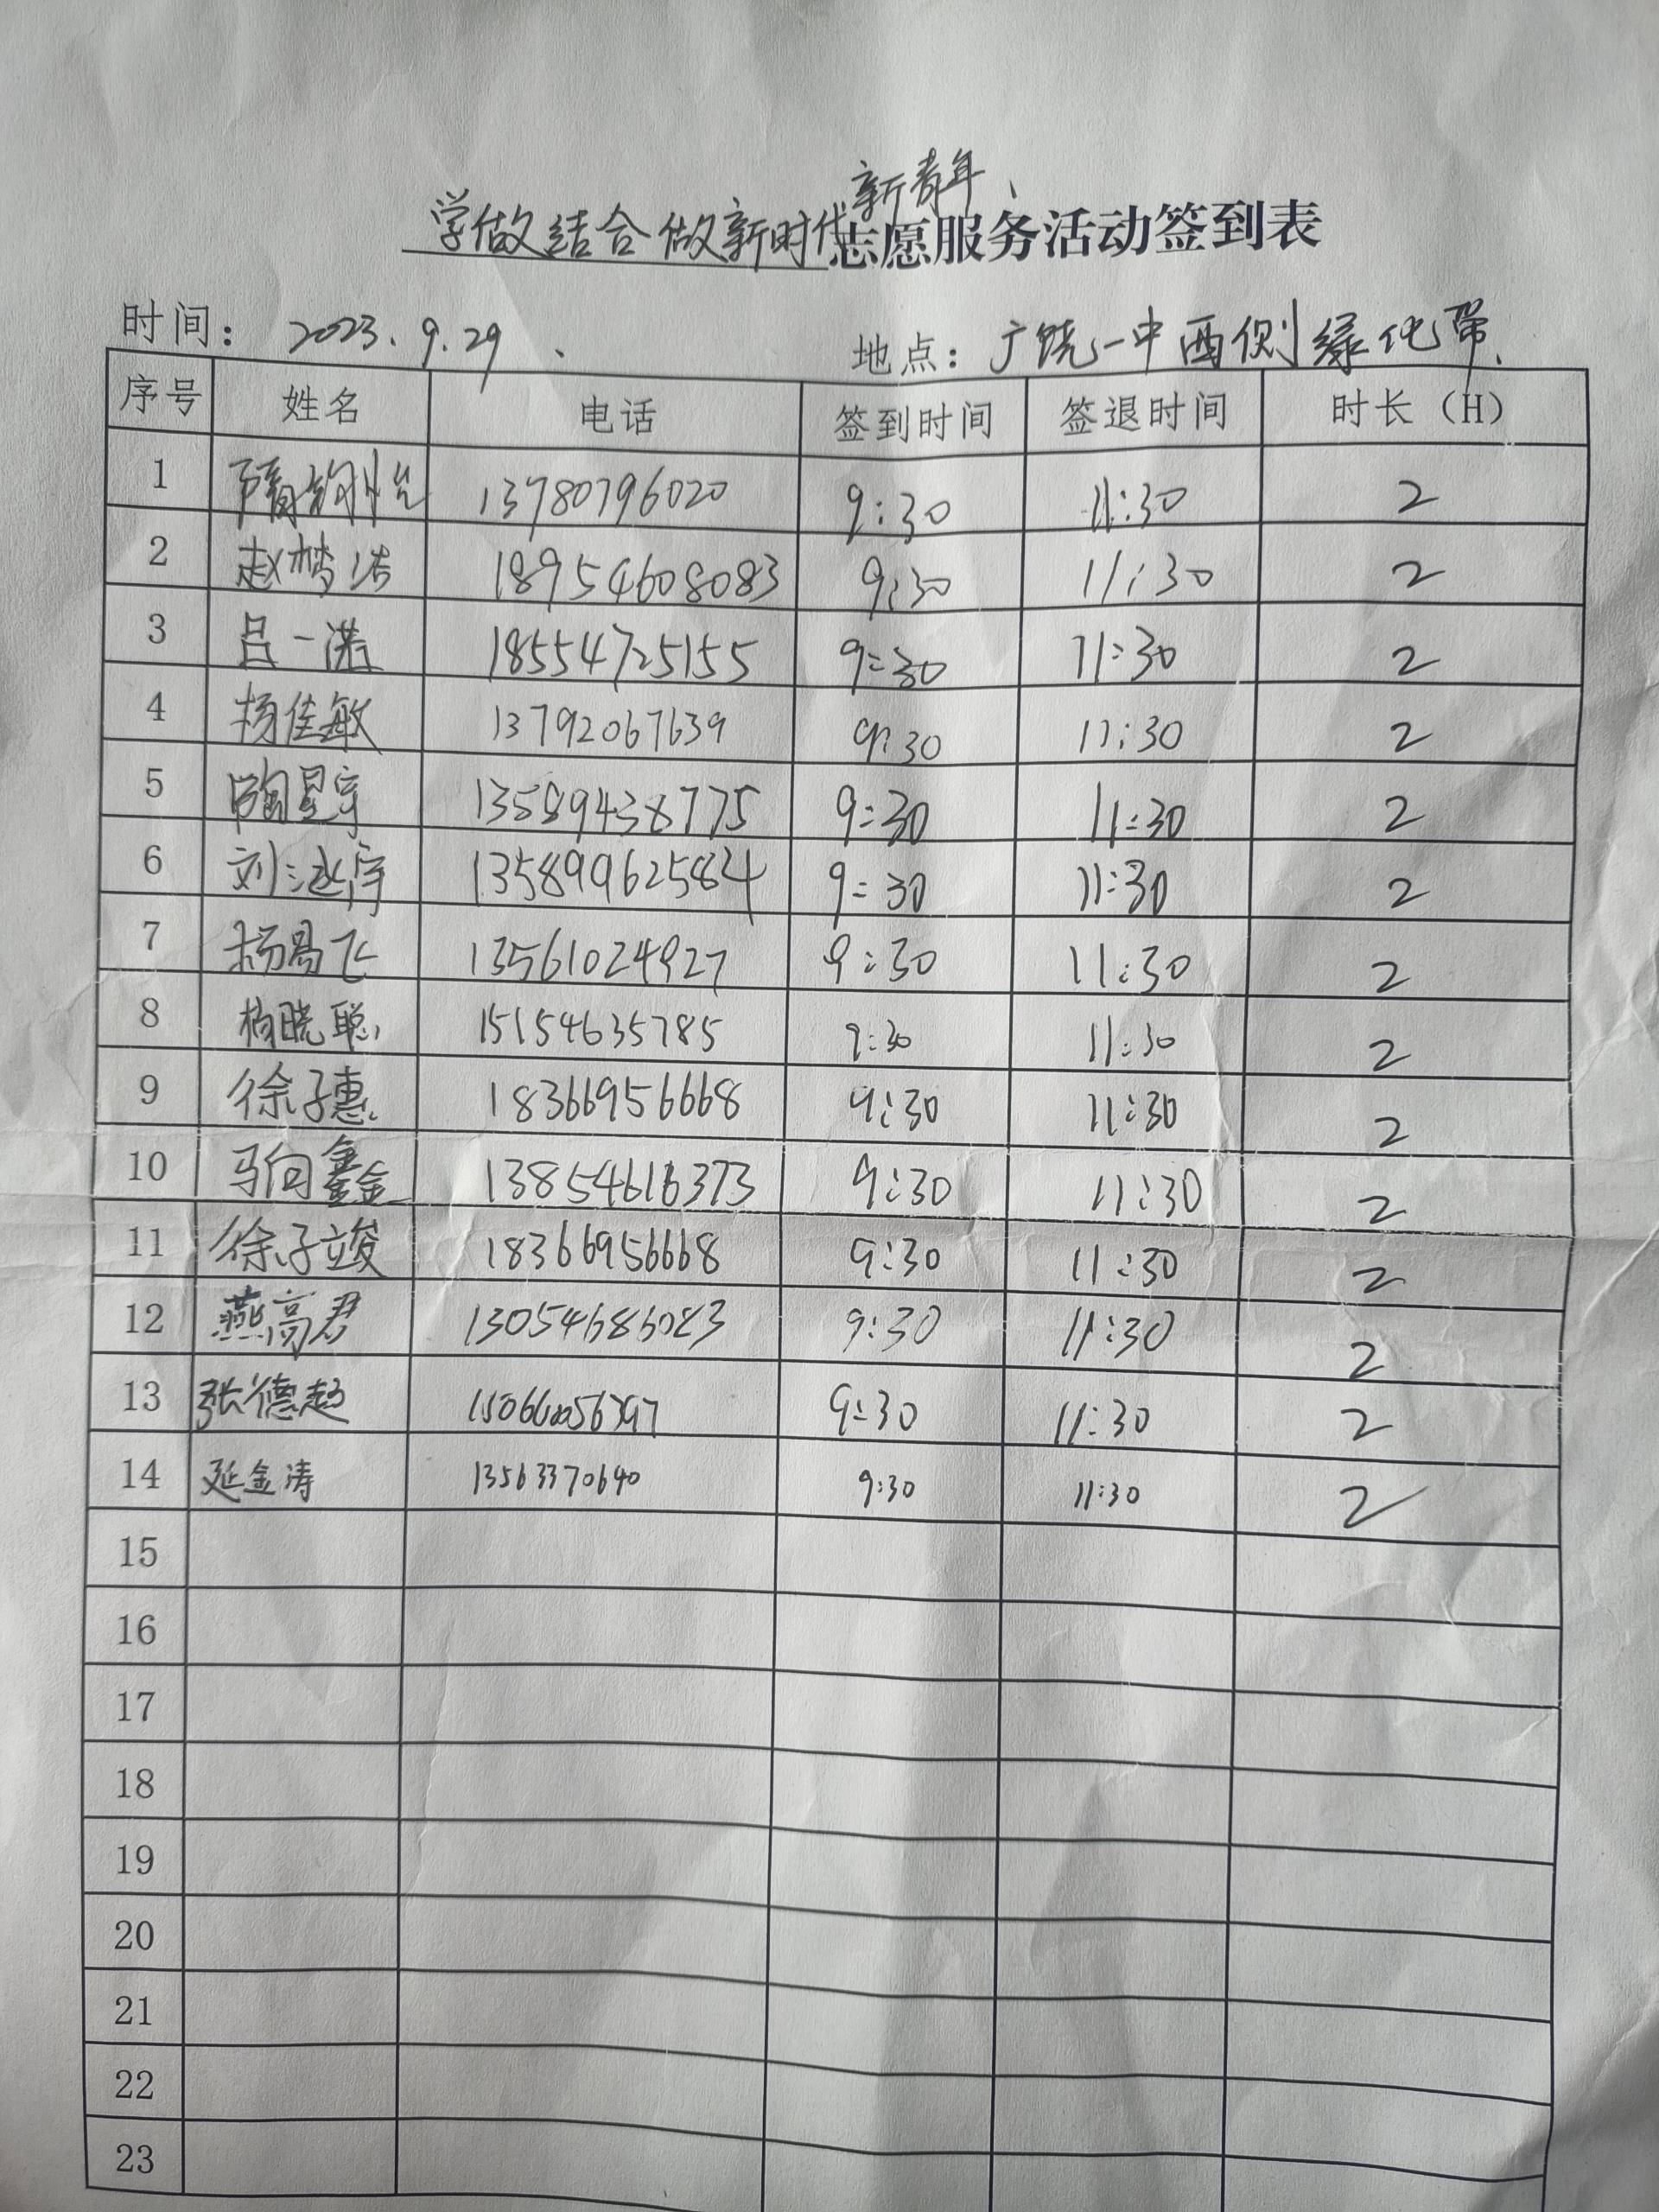 学做结合 做新时代新青年、志愿服务活动签到表
时间： 2023.9.29、 地点：广饶一中西侧绿化带、
序号 姓名 电话 签到时间 签退时间 时长（H）
1 隋韵怡 13780796020 9:30 11:30 2
2 赵梦洁 18954608083 9:30 11:30 2
3 吕一诺 18554725155 9:30 11:30 2
4 杨佳敏 13792067639 9:30 11:30 2
5 陶星宇 13589438775 9:30 11:30 2
6 刘 13589962584 9:30 11:30 2
7 杨易飞 13561024927 9:30 11:30 2
8 杨晓聪 15154635785 9:30 11:30 2
9 徐子惠 18366956668 9:30 11:30 2
10 马向鑫 13854616373 9:30 11:30 2
11 徐子竣 18366956668 9:30 11:30 2
12 燕高君 9:30 11:30 2
13 张德超 9:30 11:30 2
14 延金涛 13563370640 9:30 11:30 2
15
16
17
18
19
20
21
22
23